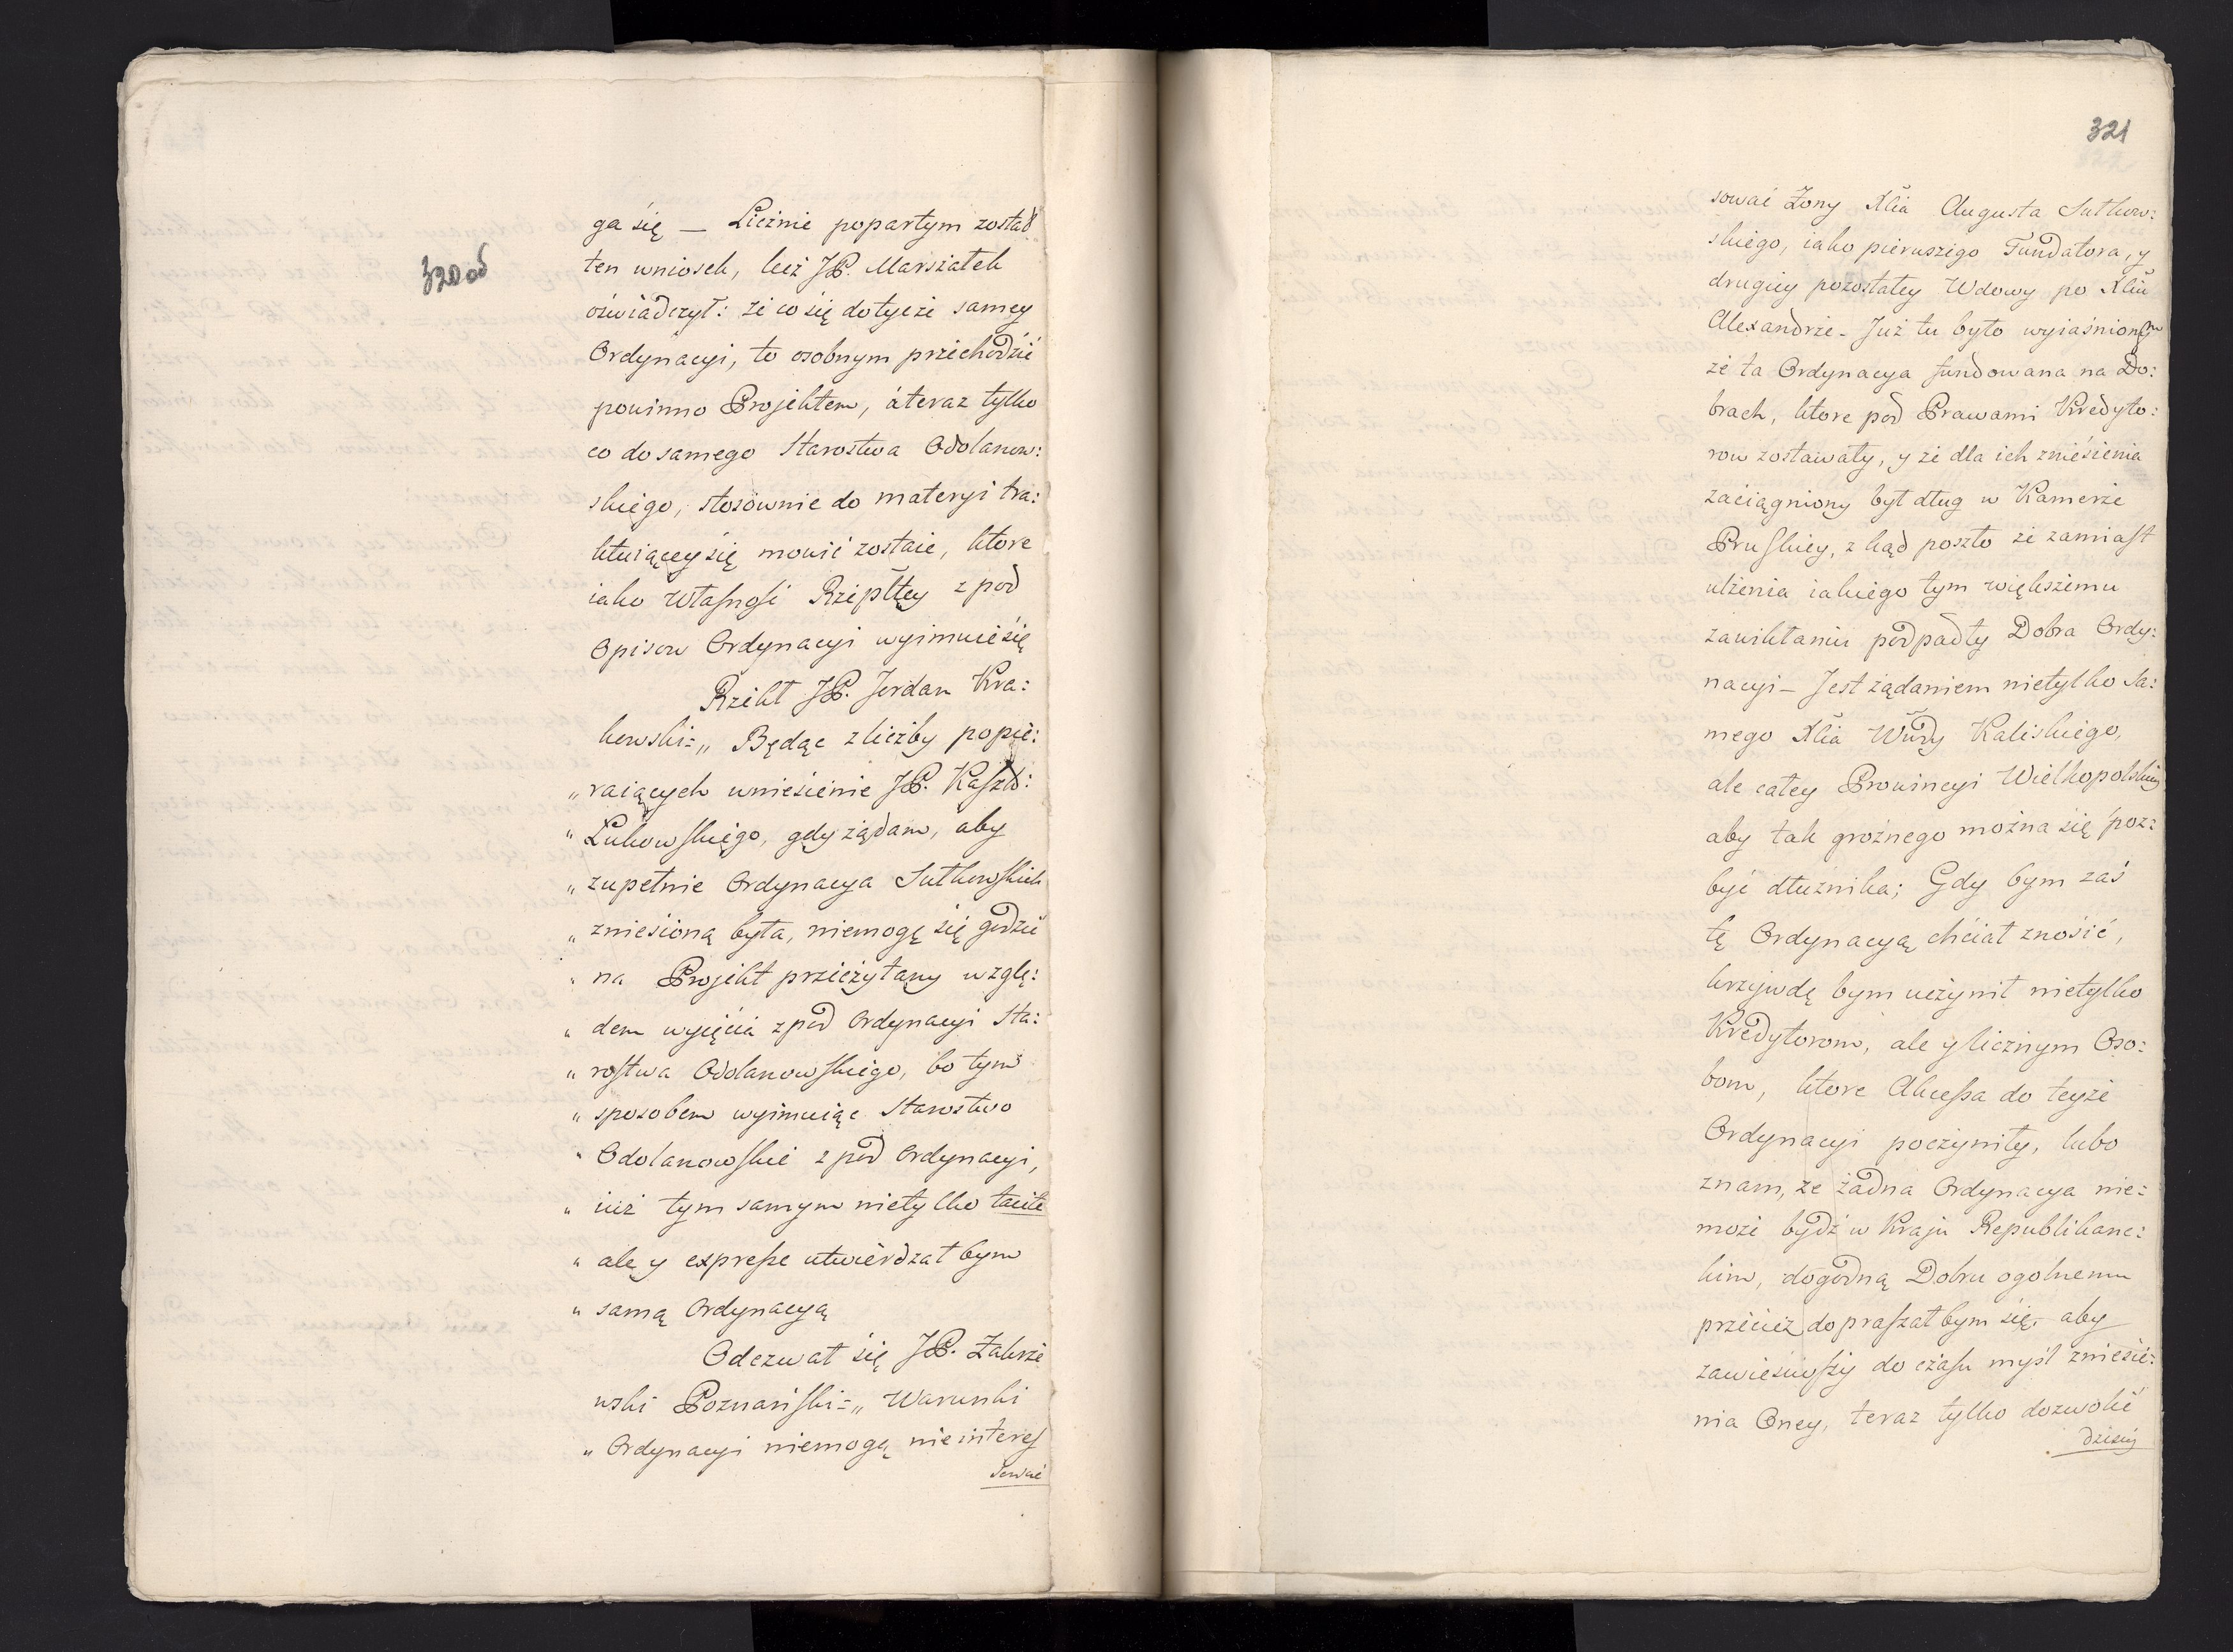 320 od
ga się — Licznie popartym został
ten wniosek, lecz JP. Marszałek
oświadczył: że co się dotycze samey
Ordynacyi, to osobnym przechodzić
powinno Projektem, á teraz tylko
co do samego Starostwa Odolanow:
skiego, stosownie do materyi tra:
ktuiącey się mowić zostaie, ktore
iako Własność Rzepltey z pod
Opisow Ordynacyi wyimuie się
Rzekł JP. Jordan Kra:
kowski=„ Będąc z liczby popie:
„ raiących wniesienie JP. Kaszt:
„ Łukowskiego, gdy żądam, aby
„ zupełnie Ordynacya Sułkowskich
„ zniesioną była, niemogę się godzić
„ na Projekt przeczytany wzglę:
„ dem wyięcia z pod Ordynacyi Sta:
„ rostwa Odolanowskiego, bo tym
„ sposobem wyimuiąc Starostwo
„ Odolanowskie z pod Ordynacyi,
„ iuż tym samym nietylko tacite
„ ale y expresse utwierdzał bym
„ samą Ordynacyą
Odezwał się JP. Zakrze
wski Poznański=„ Warunki
„ Ordynacyi niemogą nieinteres
sować
321
sować Żony Xcia Augusta Sułkow:
skiego, iako pierwszego Fundatora, y
drugiey pozostałey Wdowy po Xciu
Alexandrze - Już tu było wyiaśnionym
że ta Ordynacya fundowana na Do:
brach, ktore pod Prawami Kredyto:
row zostawały, y że dla ich zniesienia
zaciągniony był dług w Kamerze
Pruskiey, z kąd poszło że zamiast
ulżenia iakiego tym większemu
zawikłaniu podpadły Dobra Ordy:
nacyi - Jest żądaniem nietylko Sa:
mego Xcia Wwdy Kaliskiego,
ale całey Prowincyi Wielkopolskiey
aby tak groźnego można się poz:
być dłużnika; Gdy bym zaś
tę Ordynacyą chciał znosić,
krzywdę bym uczynił nietylko
Kredytorom, ale y licznym Oso:
bom, ktore Akcessa do teyże
Ordynacyi poczyniły, lubo
znam, że żadna Ordynacya nie:
może bydź w Kraju Republikanc:
kim, dogodną Dobru ogolnemu
przecież dopraszał bym się, aby
zawiesiwszy do czasu myśl zniesie:
nia Oney, teraz tylko dozwolić
dzisiey